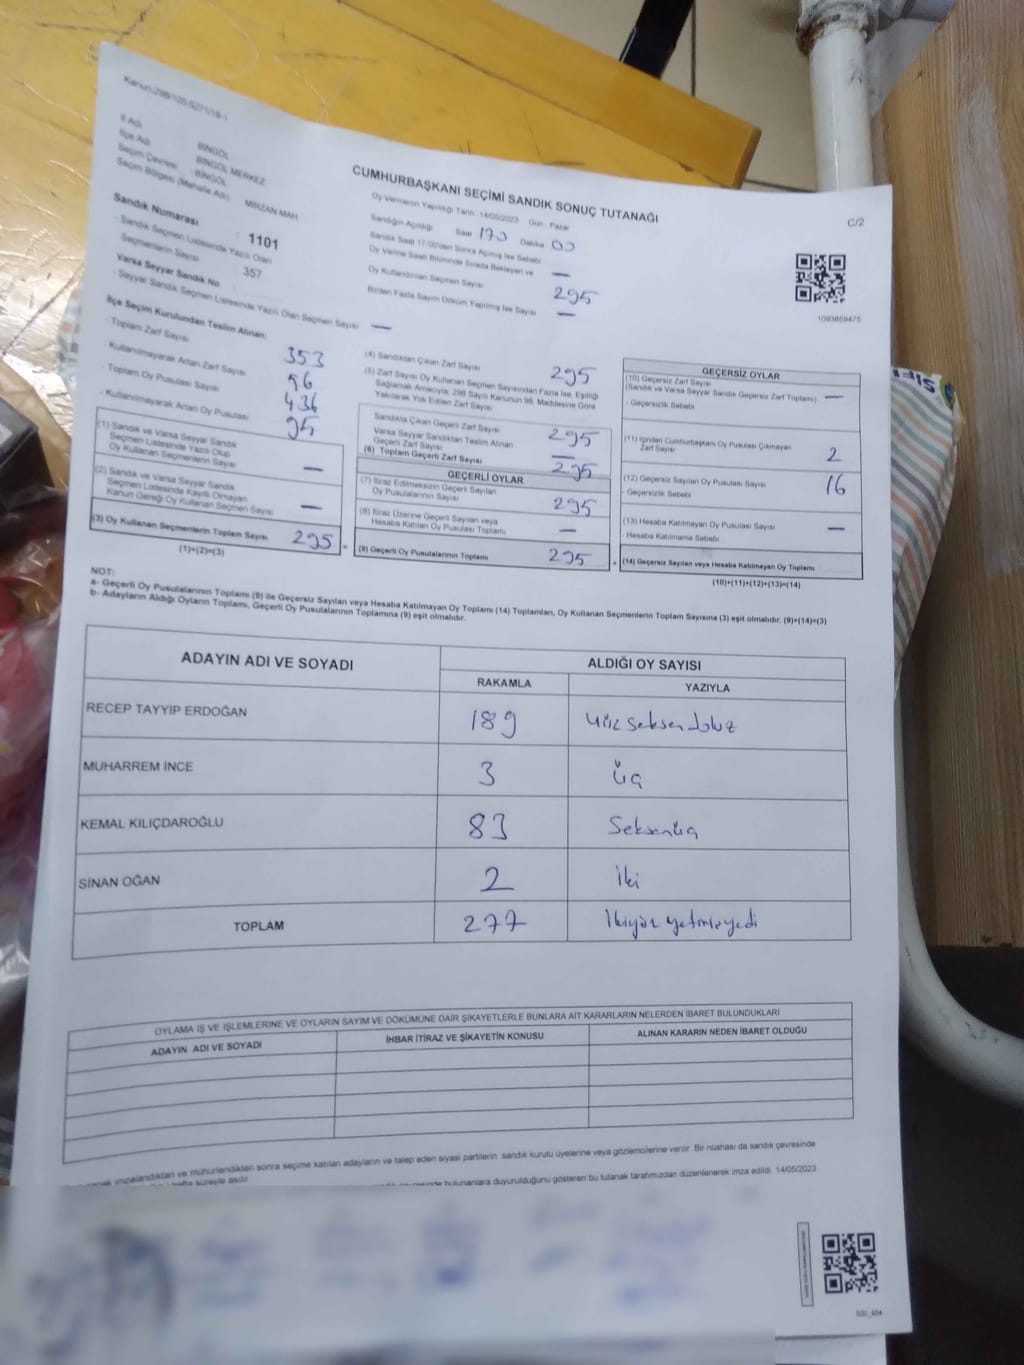 Kanun:298/105,6271/18-1
C/2
İl Adı : BİNGÖL
İlçe Adı : BİNGÖL MERKEZ
Seçim Çevresi : BİNGÖL
Seçim Bölgesi (Mahalle Adı) MİRZAN MAH
Sandık Numarası : 1101
- Sandık Seçmen Listesinde Yazılı Olan
Seçmenlerin Sayısı : 357
Varsa Seyyar Sandık No :
- Seyyar Sandık Seçmen Listesinde Yazılı Olan Seçmen Sayısı —
CUMHURBAŞKANI SEÇİMİ SANDIK SONUÇ TUTANAĞI
Oy Vermenin Yapıldığı Tarih : 14/05/2023 Gün : Pazar
Sandığın Açıldığı Saat Dakika 00
Sandık Saat 17:00'den Sonra Açılmış İse Sebebi —
Oy Verme Saati Bitiminde Sırada Bekleyen ve
Oy Kullandırılan Seçmen Sayısı 295
Birden Fazla Sayım Döküm Yapılmış İse Sayısı —
1093859475
İlçe Seçim Kurulundan Teslim Alınan;
- Toplam Zarf Sayısı 353
- Kullanılmayarak Artan Zarf Sayısı
- Toplam Oy Pusulası Sayısı 436
- Kullanılmayarak Artan Oy Pusulası
(1) Sandık ve Varsa Seyyar Sandık
Seçmen Listesinde Yazılı Olup
Oy Kullanan Seçmenlerin Sayısı —
(2) Sandık ve Varsa Seyyar Sandık
Seçmen Listesinde Kayıtlı Olmayan
Kanun Gereği Oy Kullanan Seçmen Sayısı —
(3) Oy Kullanan Seçmenlerin Toplam Sayısı 295 =
(1)+(2)=(3)
(4) Sandıktan Çıkan Zarf Sayısı 295
(5) Zarf Sayısı Oy Kullanan Seçmen Sayısından Fazla İse, Eşitliği
Sağlamak Amacıyla, 298 Sayılı Kanunun 98. Maddesine Göre
Yakılarak Yok Edilen Zarf Sayısı
Sandıkta Çıkan Geçerli Zarf Sayısı 295
Varsa Seyyar Sandıktan Teslim Alınan
Geçerli Zarf Sayısı —
(6) Toplam Geçerli Zarf Sayısı 295
GEÇERLİ OYLAR
(7) İtiraz Edilmeksizin Geçerli Sayılan
Oy Pusulalarının Sayısı 295
(8) İtiraz Üzerine Geçerli Sayılan veya
Hesaba Katılan Oy Pusulası Toplamı —
(9) Geçerli Oy Pusulalarının Toplamı 295 +
GEÇERSİZ OYLAR
(10) Geçersiz Zarf Sayısı
(Sandık ve Varsa Seyyar Sandık Geçersiz Zarf Toplamı) —
- Geçersizlik Sebebi
(11) İçinden Cumhurbaşkanı Oy Pusulası Çıkmayan
Zarf Sayısı 2
(12) Geçersiz Sayılan Oy Pusulası Sayısı 16
- Geçersizlik Sebebi
(13) Hesaba Katılmayan Oy Pusulası Sayısı —
- Hesaba Katılmama Sebebi
(14) Geçersiz Sayılan veya Hesaba Katılmayan Oy Toplamı
(10)+(11)+(12)+(13)=(14)
NOT:
a- Geçerli Oy Pusulalarının Toplamı (9) ile Geçersiz Sayılan veya Hesaba Katılmayan Oy Toplamı (14) Toplamları, Oy Kullanan Seçmenlerin Toplam Sayısına (3) eşit olmalıdır. (9)+(14)=(3)
b- Adayların Aldığı Oyların Toplamı, Geçerli Oy Pusulalarının Toplamına (9) eşit olmalıdır.
ADAYIN ADI VE SOYADI ALDIĞI OY SAYISI
RAKAMLA YAZIYLA
RECEP TAYYİP ERDOĞAN 189 yüz seksen dokuz
MUHARREM İNCE 3 üç
KEMAL KILIÇDAROĞLU 83 Seksenüç
SİNAN OĞAN 2 iki
TOPLAM 277 ikiyüz yetmişyedi
OYLAMA İŞ VE İŞLEMLERİNE VE OYLARIN SAYIM VE DÖKÜMÜNE DAİR ŞİKAYETLERLE BUNLARA AİT KARARLARIN NELERDEN İBARET BULUNDUKLARI
ADAYIN ADI VE SOYADI İHBAR İTİRAZ VE ŞİKAYETİN KONUSU ALINAN KARARIN NEDEN İBARET OLDUĞU
imzalandıktan ve mühürlendikten sonra seçime katılan adayların ve talep eden siyasi partilerin sandık kurulu üyelerine veya gözlemcilerine verilir. Bir nüshası da sandık çevresinde
hafta süreyle asılır. bulunanlara duyurulduğunu gösteren bu tutanak tarafımızdan düzenlenerek imza edildi. 14/05/2023